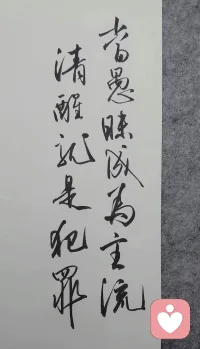 当愚昧成为主流
清醒就是犯罪